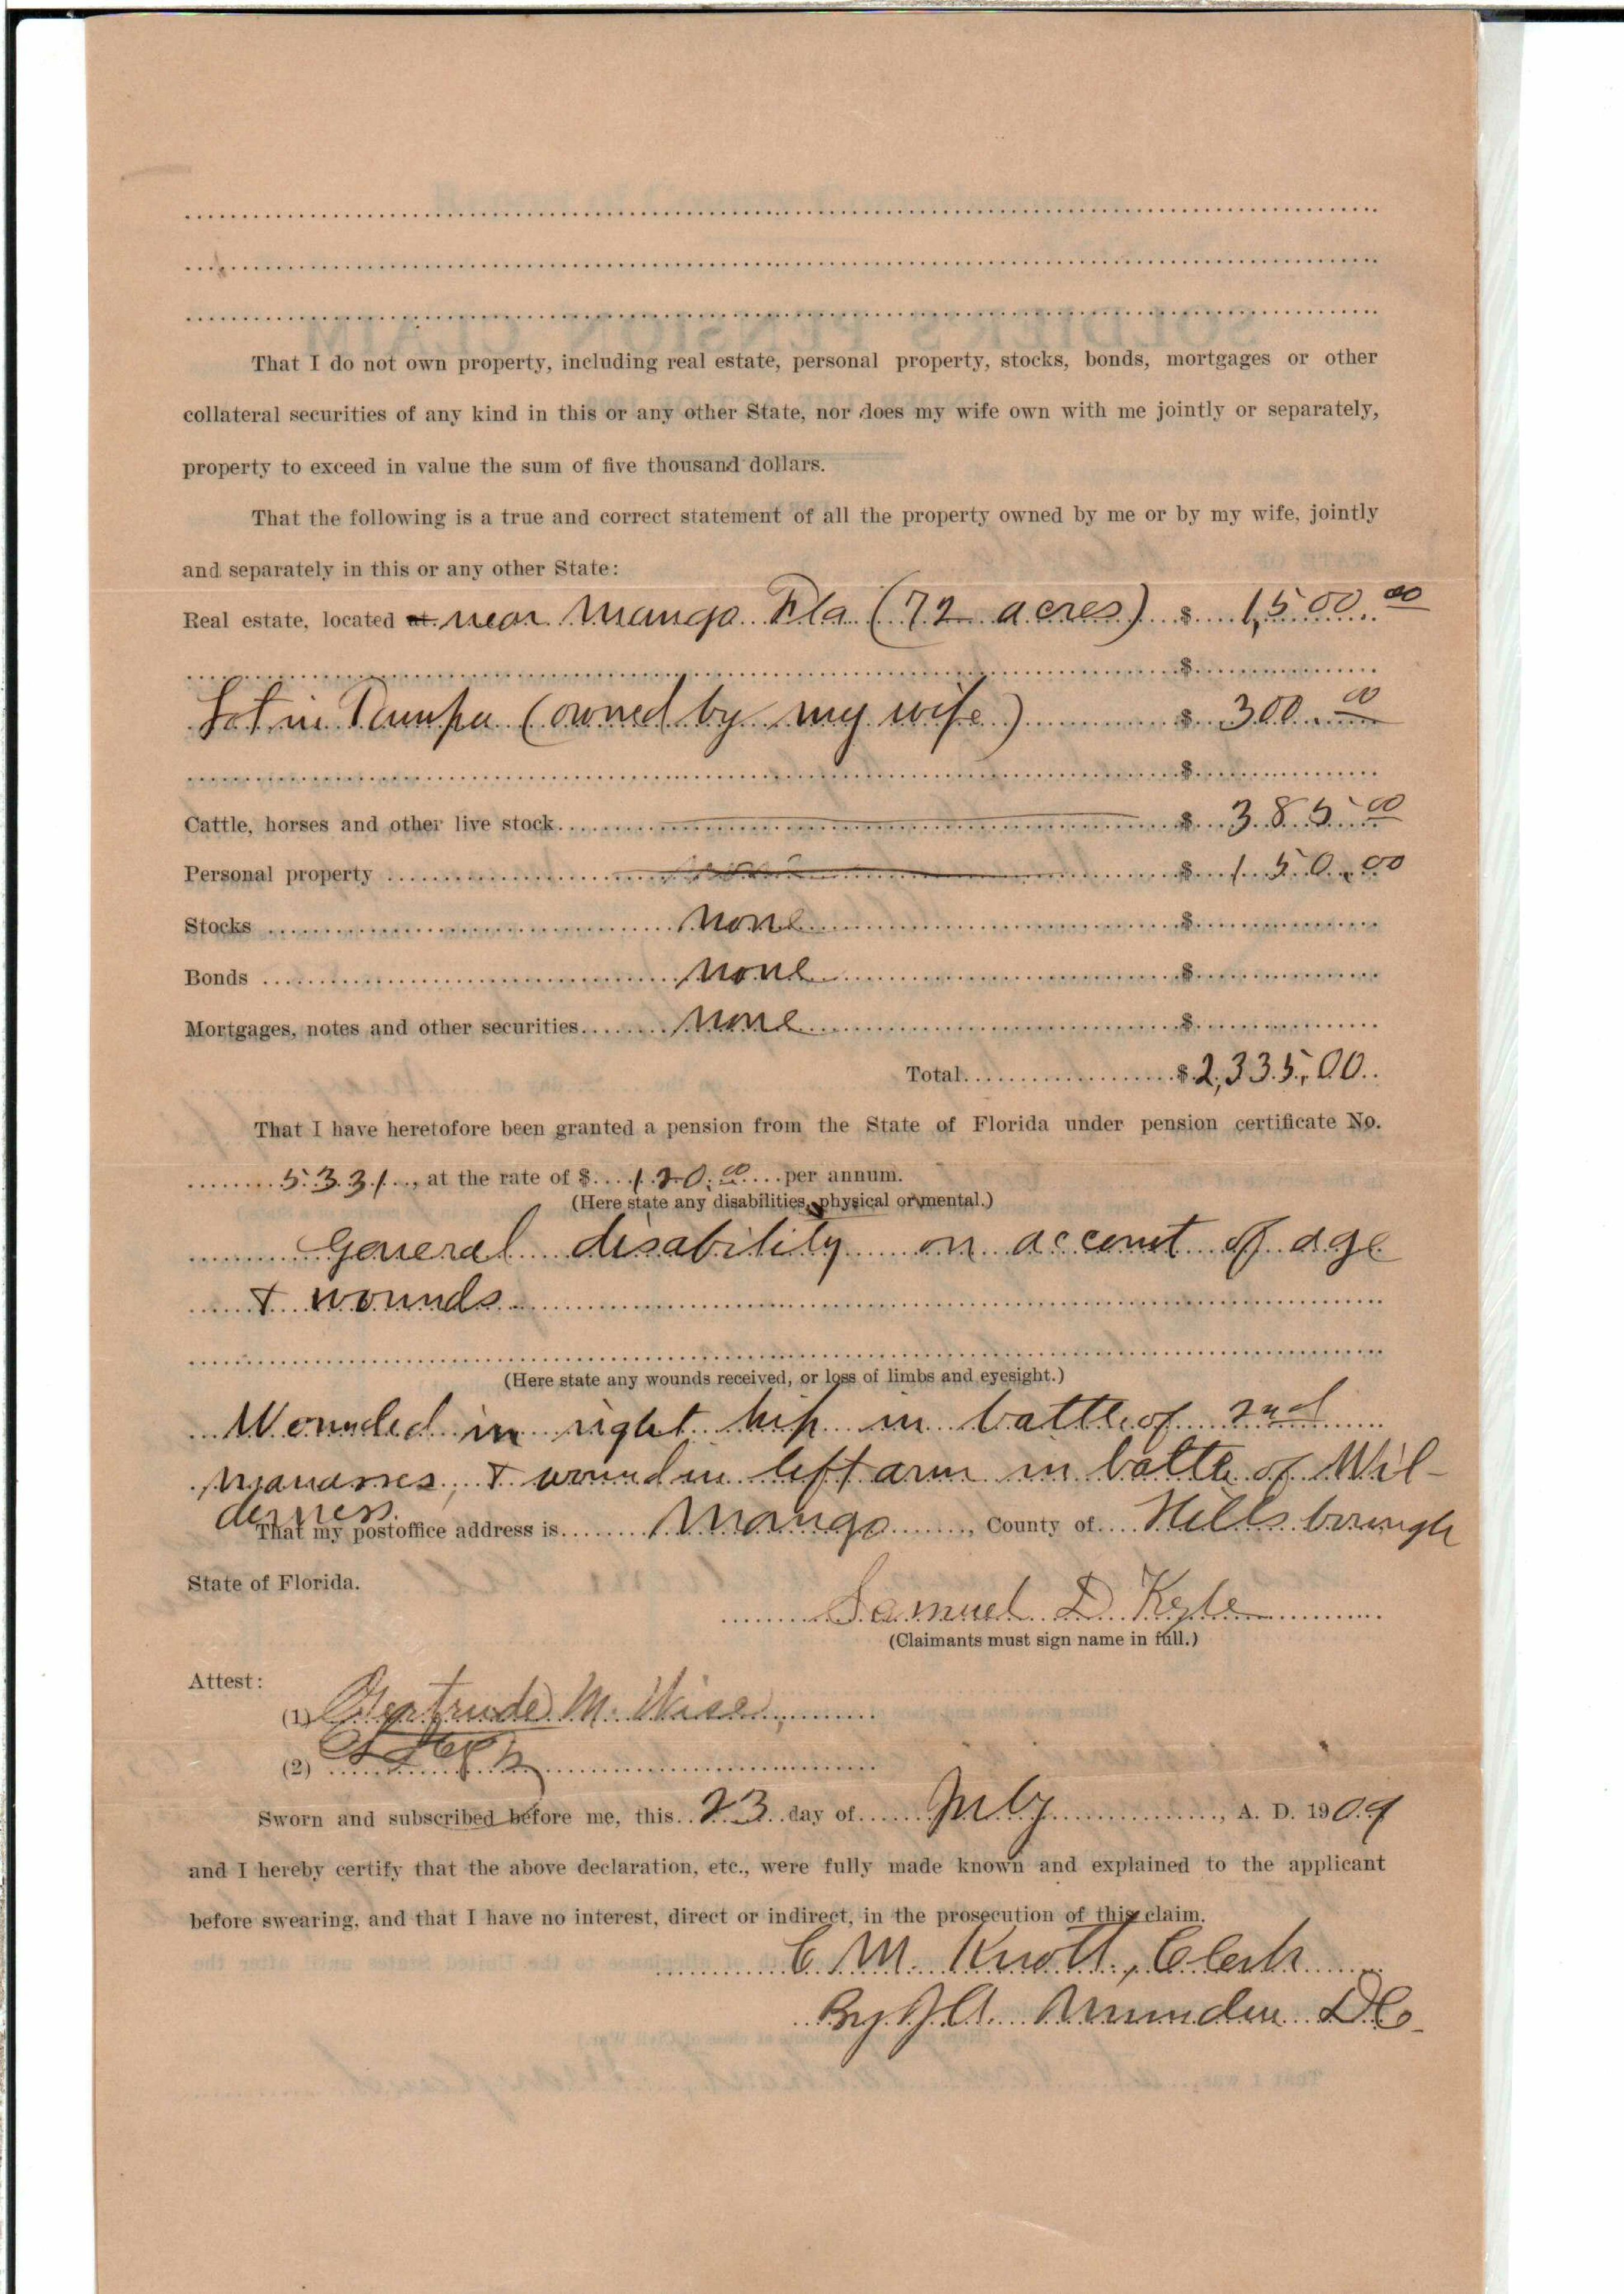 That I do not own property, including real estate, personal property, stocks, bonds, mortgages or other
collateral securities of any kind in this or any other State, nor does my wife own with me jointly or separately,
property to exceed in value the sum of five thousand dollars.
That the following is a true and correct statement of all the property owned by me or by my wife, jointly
and separately in this or any other State:
Real estate, located at near Mango Fla (72 acres) $ 1,500.00
$
Lot in Tampa (owned by my wife) $ 300.00
$
Cattle, horses and other live stock $ 385.00
Personal property none $ 150.00
Stocks none $
Bonds none $
Mortgages, notes and other securities none $
Total $2,335.00
That I have heretofore been granted a pension from the State of Florida under pension certificate No.
5331, at the rate of $ 120.00 per annum.
(Here state any disabilities, physical or mental.)
General disability on account of age
& wounds
(Here state any wounds received, or loss of limbs and eyesight.)
Wounded in right hip in battle of 2nd
Manasses, & wound in left arm in battle of Wil-
derness.
That my postoffice address is Mango, County of Hillsborough
State of Florida.
Samuel D. Kyle
(Claimants must sign name in full.)
Attest:
(1) Gertrude M. Wise
(2)
Sworn and subscribed before me, this 23 day of July, A. D. 1909
and I hereby certify that the above declaration, etc., were fully made known and explained to the applicant
before swearing, and that I have no interest, direct or indirect, in the prosecution of this claim.
C M. Knott, Clerk
By J A. Munden DC.